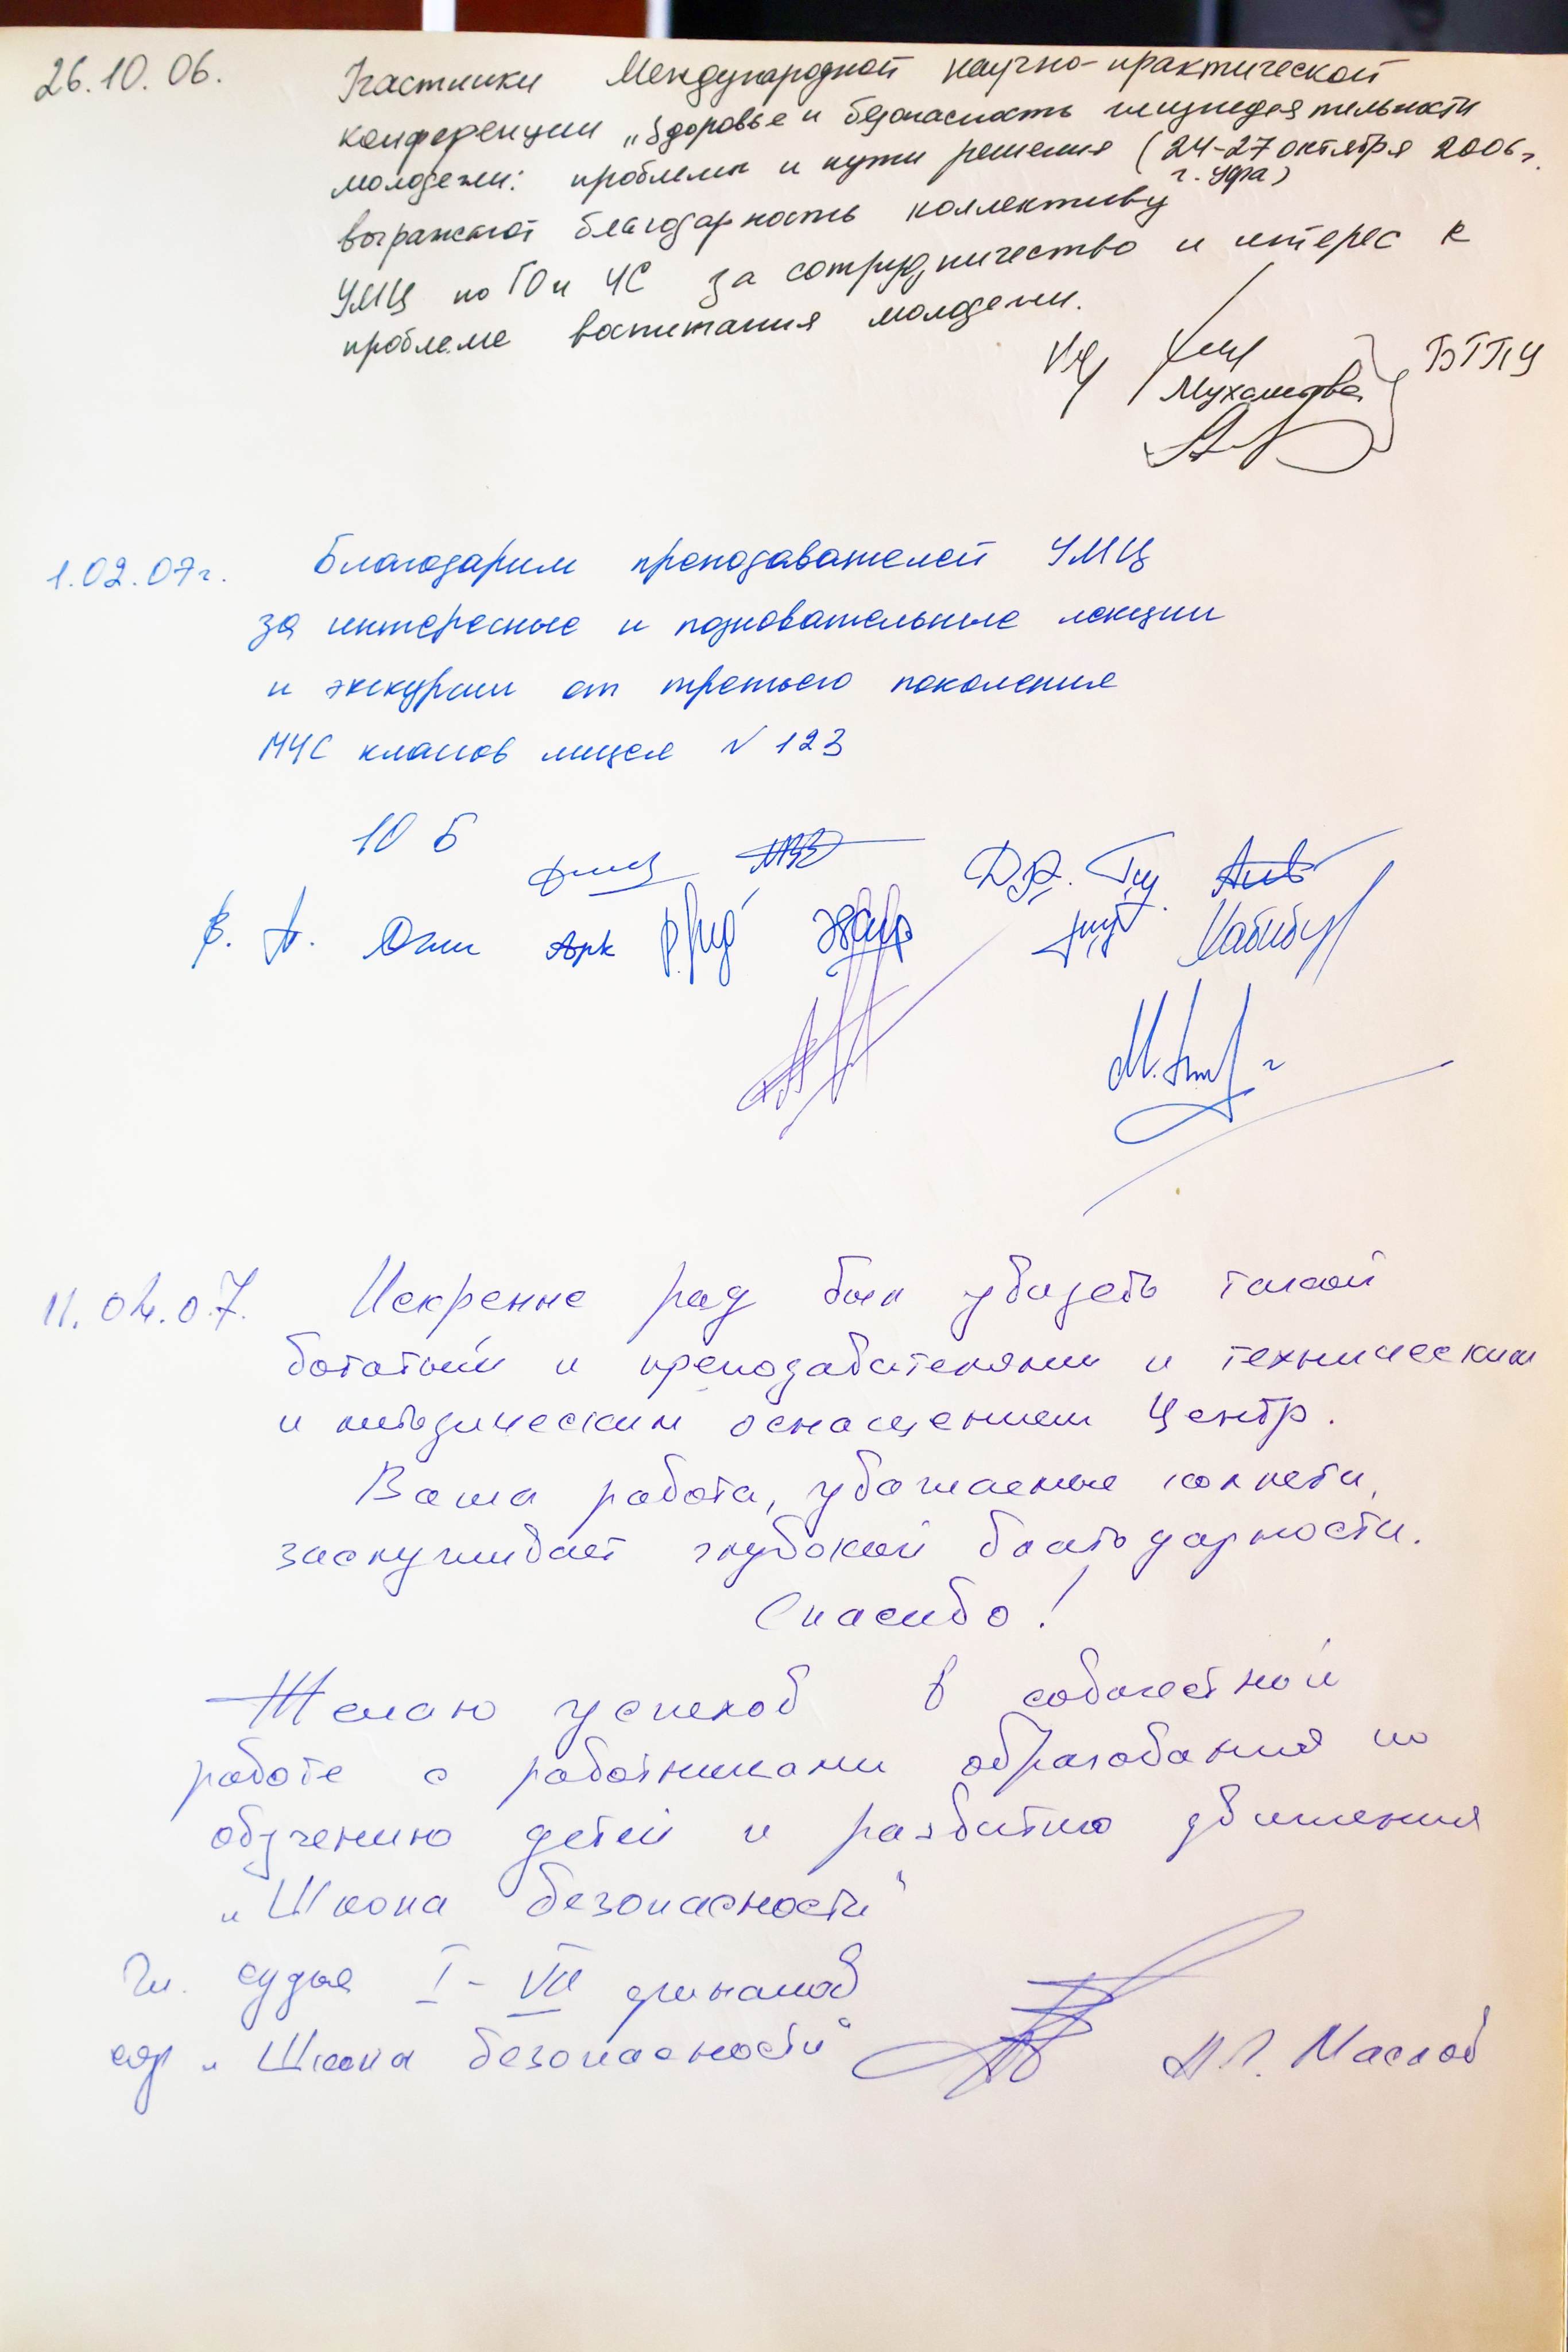 26.10.06. Участники Международной научно-практической
конференции „Здоровье и безопасность жизнедеятельности
молодежи: проблемы и пути решения (24-27 октября 2006г.
г. Уфа)
выражают благодарность коллективу
УМЦ по ГО и ЧС за сотрудничество и интерес к
проблеме воспитания молодежи.
БГПУ
Мухаметова
1.02.07г. Благодарим преподавателей УМЦ
за интересные и познавательные лекции
и экскурсии от третьего поколения
МЧС классов лицея N 123
10 Б
Арк
11.04.07. Искренне рад был увидеть такой
богатый и преподавателями и техническим
и методическим оснащением Центр.
Ваша работа, уважаемые коллеги,
заслуживает глубокой благодарности.
Спасибо!
Желаю успехов в совместной
работе с работниками образования по
обучению детей и развитию движения
„Школа безопасности“
Гл. судья I - VII финалов
сор „Школа безопасности“ Маслов